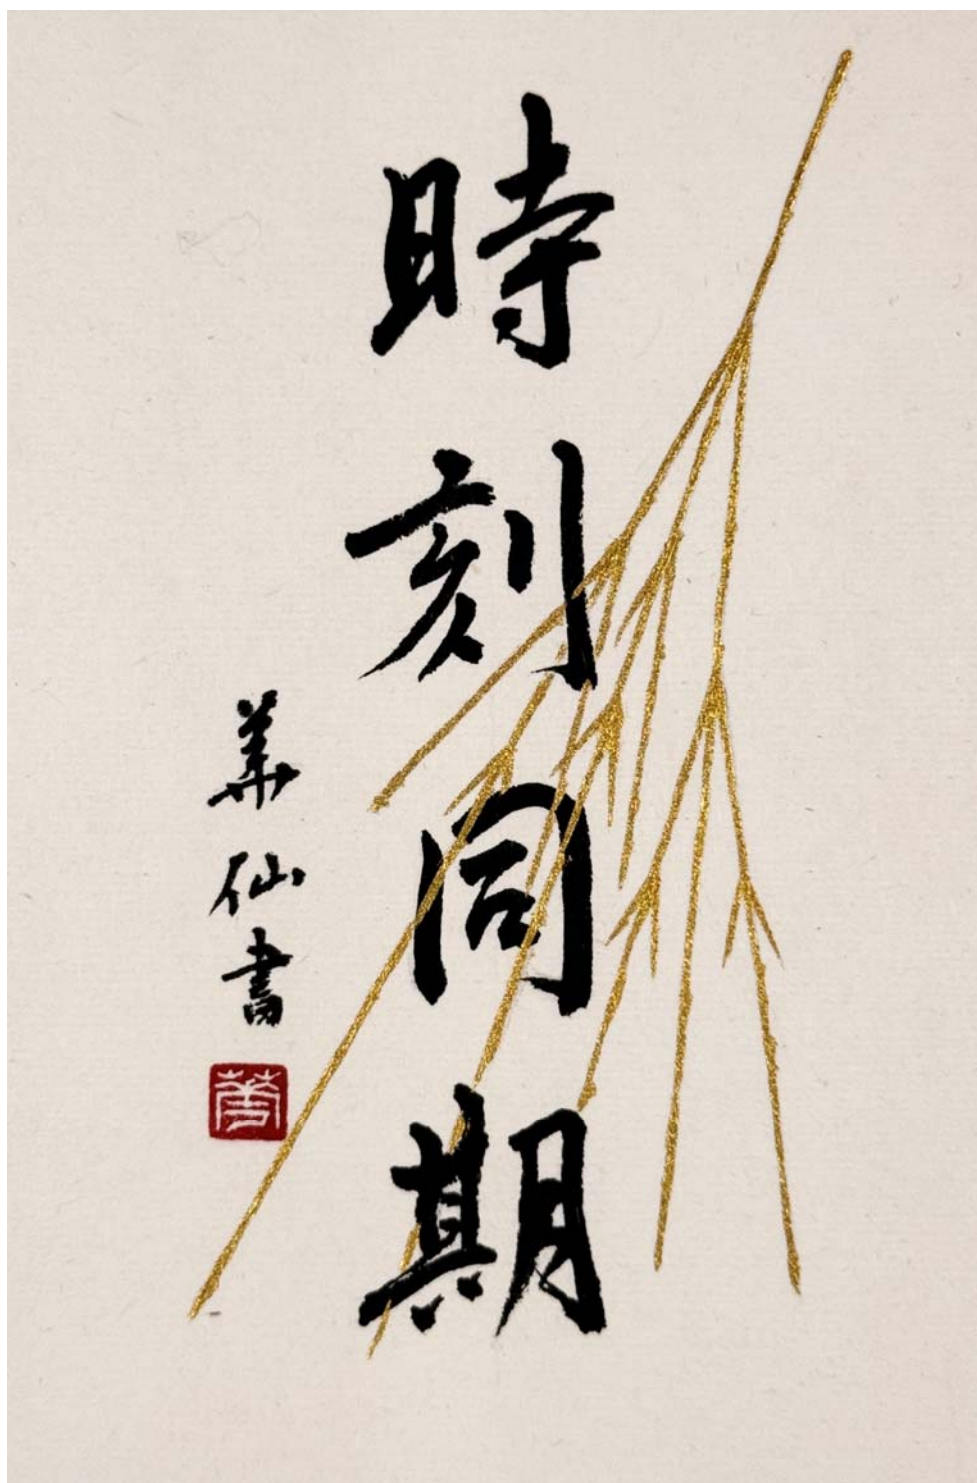 時刻同期
華仙書
華